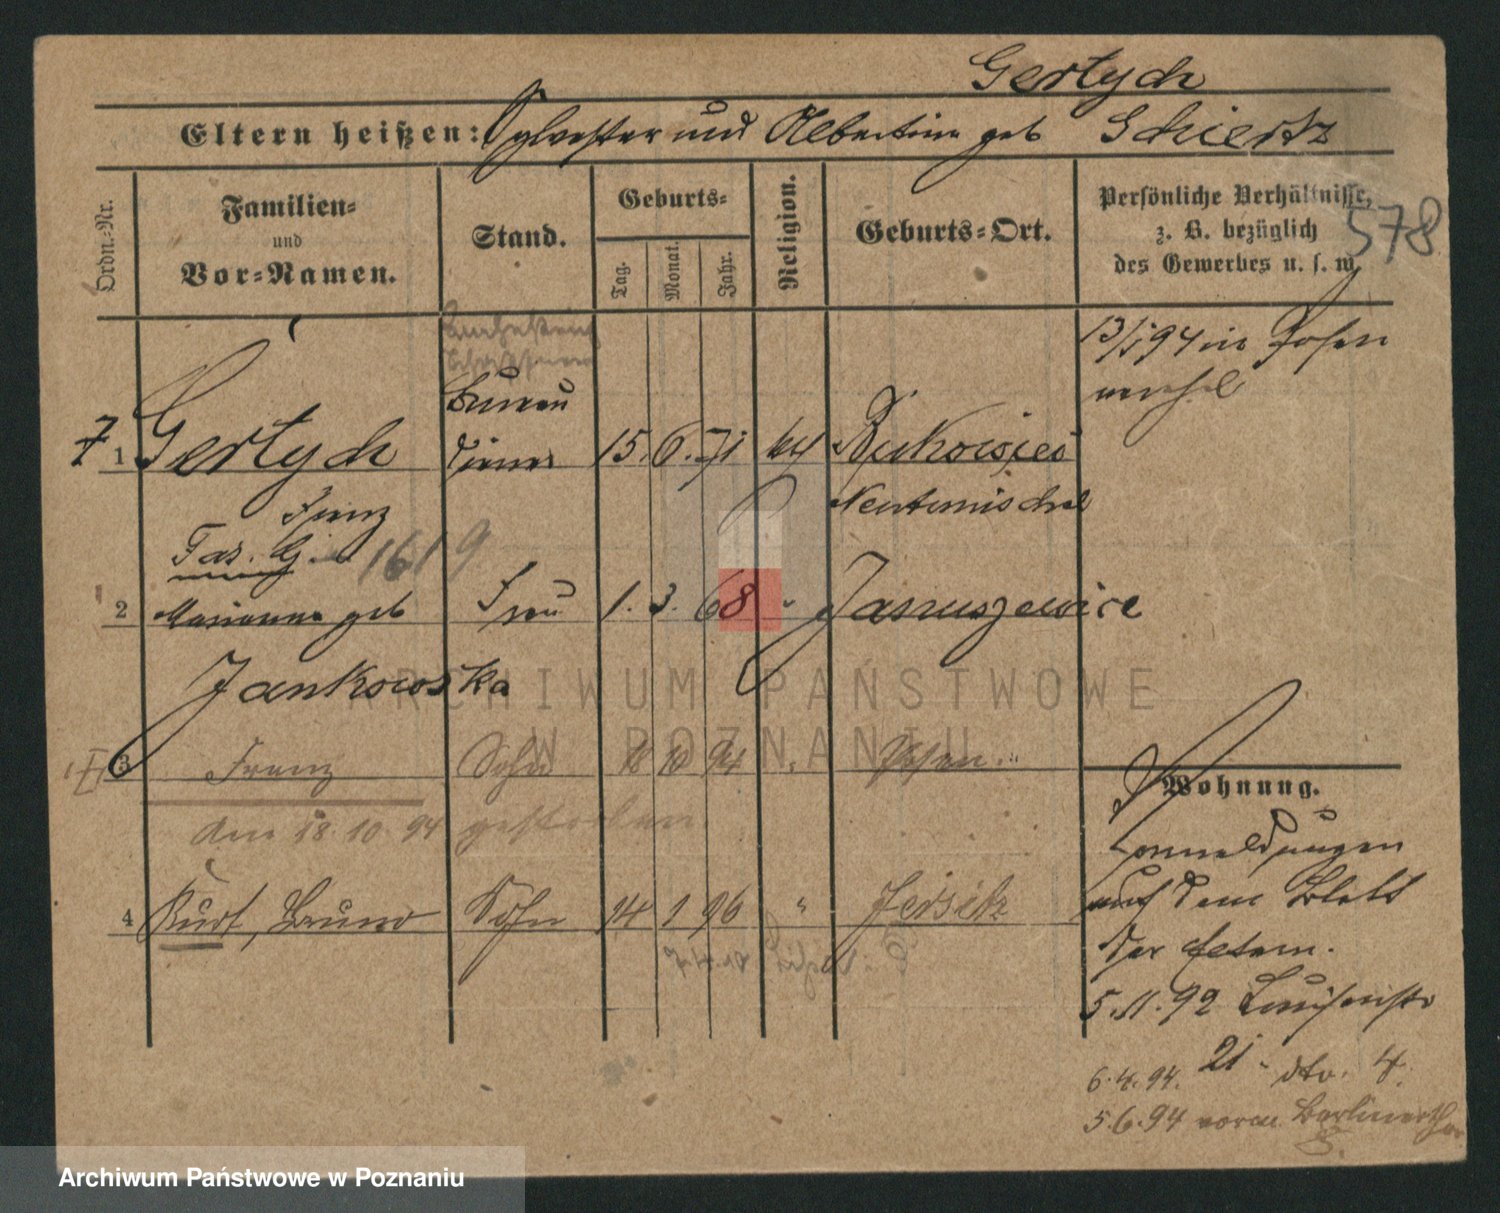 Gertych
Eltern heißen: Sylvester und Albertine geb Schiertz
Ordn.-Nr.
Familien-
und
Vor-Namen.
Stand.
Geburts-
Tag.
Monat.
Jahr.
Religion.
Geburts-Ort.
Persönliche Verhältnisse,
z. B. bezüglich
des Gewerbes u. s. w.
578
13/1 94 in Posen
Bureau
1 Gertych diener 15. 6. 71 kth
Franz
Neutomischel
1619
2 Marianna geb Frau 1. 3. 68 " Januszewice
Jankowska
3 Franz Sohn 18 10 94 " Posen
am 18. 10. 94 gestorben
4 Kurt, Bruno Sohn 14 1 96 " Jersitz
Wohnung.
auf dem Blatt
der Eltern.
5. 11. 92 Louisenstr
21.
6. 4. 94. dto. 4.
5. 6. 94 vorm. Berlinerthor
Archiwum Państwowe w Poznaniu
ARCHIWUM PAŃSTWOWE
W POZNANIU